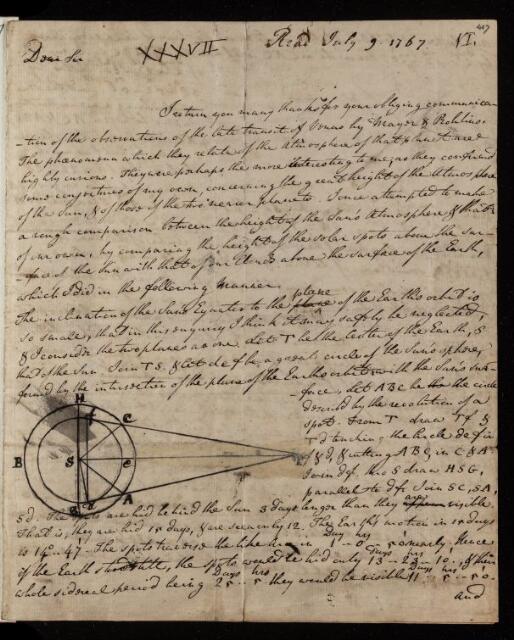 417
XXXVII
Read July 9. 1767
VI.
Dear Sir
I return you many thanks for your obliging communica-
-tion of the observations of the late transit of Venus by Mayer &
The phænomena which they relate of the Atmosphere of that planet are
highly curious. They were perhaps the more interesting to me, as they confirmed
some conjectures of my own, concerning the great height of the Atmosphere
of the Sun, & of those of the two nearer planets. I once attempted to make
a rough comparison between the height of the Sun's Atmosphere & that
of our own, by comparing the height of the solar spots above the sur-
-face of the Sun with that of our Clouds above the surface of the Earth,
which I did in the following manner.
The inclination of the Sun's Equator to the plane of the Earth's orbit is
so small, that in this enquiry I think it may safely be neglected,
& I consider the two planes as one. Let T be the Center of the Earth, S
that of the Sun. Join TS, & let def be a great circle of the Sun's sphere,
formed by the intersection of the plane of the Earth's orbit with the Sun's Sur-
-face, let ABC be the circle
described by the revolution of a
spot. From T draw Tf &
Td touching the circle def in
f & d, & cutting ABC in C & A
Join df. thro S draw HSG,
parallel to df. Join SC, SA,
H
f
C
B
S
e
T
d
A
G
Sd. The spots are hid behind the Sun 3 days longer than they are visible
That is, they are hid 15 days, & are seen only 12. The Earth's motion in 15 days
Day hrs
is 14°. 47'. The spots traverse the like in 1 .. 0 .. 50 nearly, hence
days hrs
if the Earth stood still, the spots would be hid only 13 .. 23 .. 10, & their
Days hrs
Days hrs
whole sidereal period being 25 .. 5 they would be visible 11 .. 5 .. 50.
and